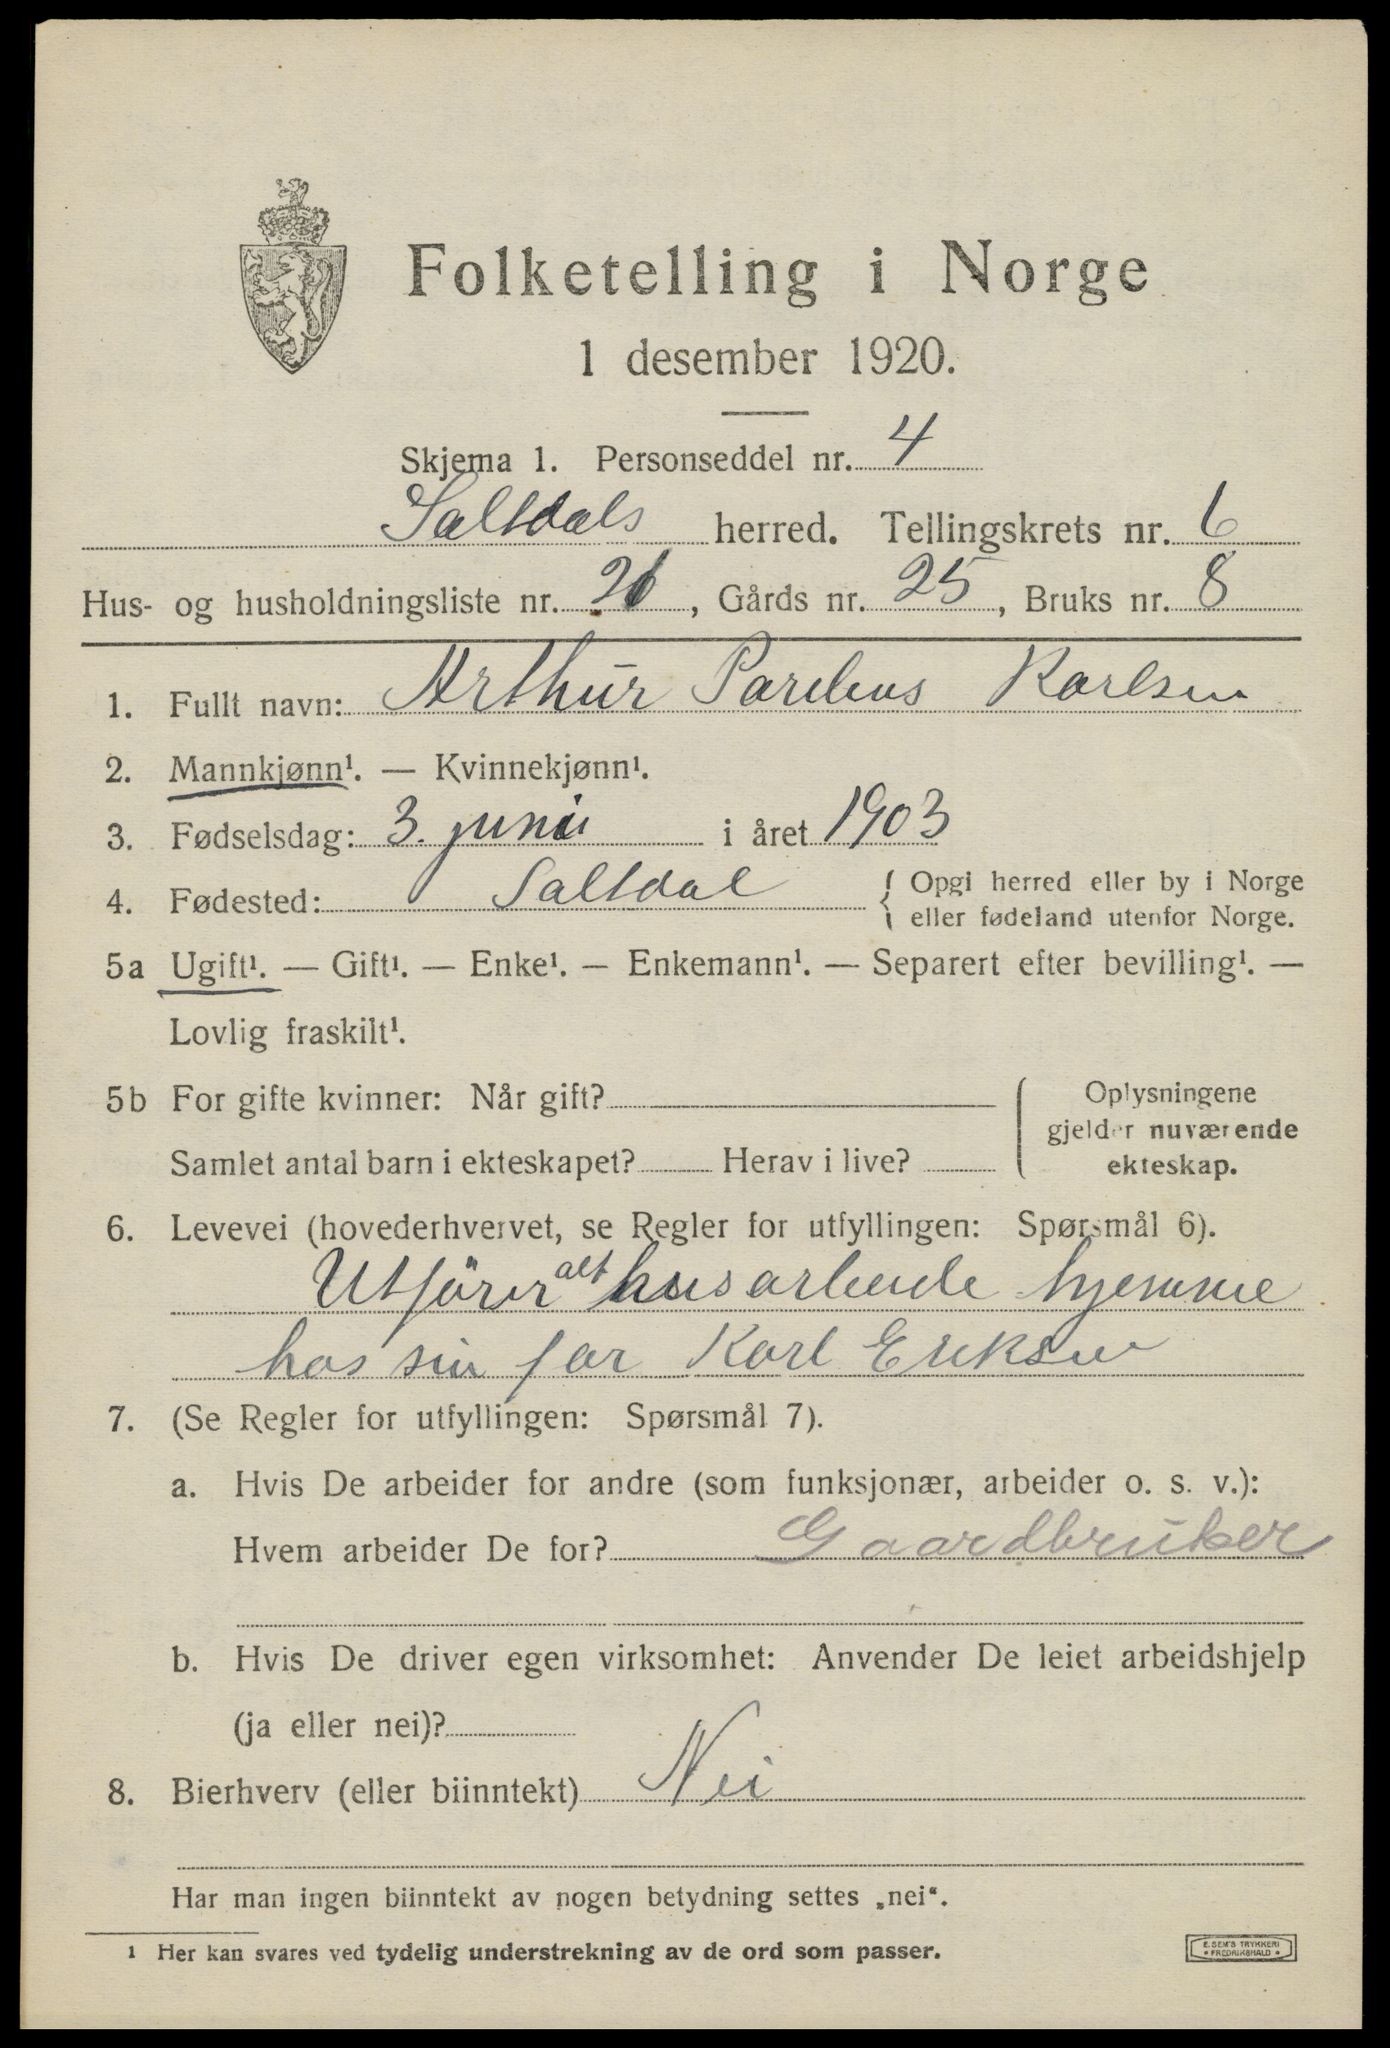 Folketelling i Norge
1 desember 1920.
Skjema 1. Personseddel nr. 4
Saltdals herred. Tellingskrets nr. 6
Hus- og husholdningsliste nr. 21, Gårds nr. 25, Bruks nr. 8
1. Fullt navn: Arthur Parelius Karlsen
2. Mannkjønn¹. — Kvinnekjønn¹.
3. Fødselsdag: 3. juni i året 1903
4. Fødested: Saltdal { Opgi herred eller by i Norge
eller fødeland utenfor Norge.
5a Ugift¹. — Gift¹. — Enke¹. — Enkemann¹. — Separert efter bevilling¹. —
Lovlig fraskilt¹.
5b For gifte kvinner: Når gift?
Samlet antal barn i ekteskapet? Herav i live?
Oplysningene
gjelder nuværende
ekteskap.
6. Levevei (hovederhvervet, se Regler for utfyllingen: Spørsmål 6).
Utförer alt husarbeide hjemme
hos sin far Karl Eriksen
7. (Se Regler for utfyllingen: Spørsmål 7).
a. Hvis De arbeider for andre (som funksjonær, arbeider o. s. v.):
Hvem arbeider De for? Gaardbruker
b. Hvis De driver egen virksomhet: Anvender De leiet arbeidshjelp
(ja eller nei)?
8. Bierhverv (eller biinntekt) Nei
Har man ingen biinntekt av nogen betydning settes „nei“.
1 Her kan svares ved tydelig understrekning av de ord som passer.
E. SEM'S TRYKKERI
• FREDRIKSHALD •